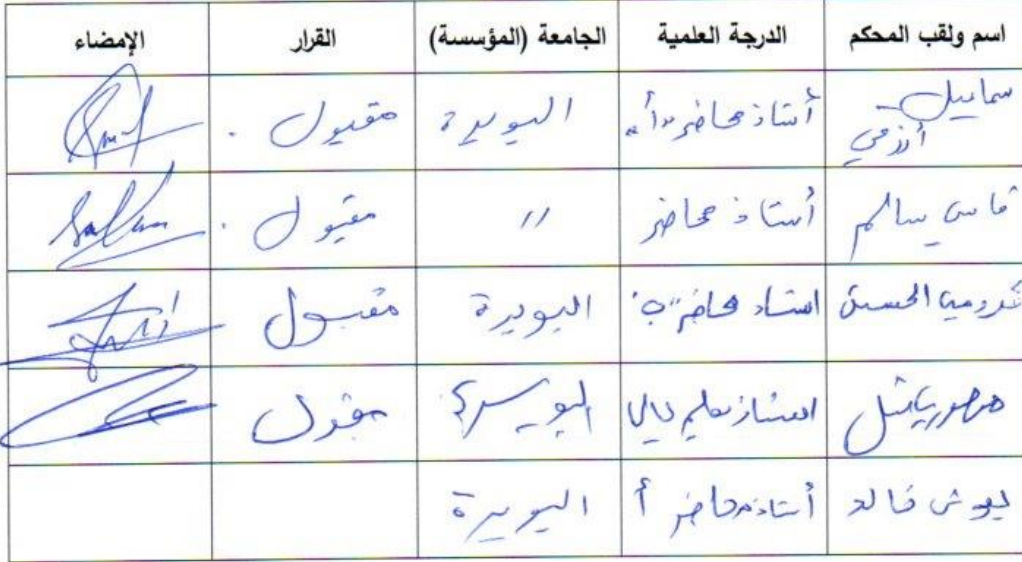 اسم ولقب المحكم الدرجة العلمية الجامعة (المؤسسة) القرار الإمضاء
سماعيل أستاذ محاضر "أ" البويرة مقبول .
قاسي سالم أستاذ محاضر // مقبول .
الحسين استاد محاضر "ب" البويرة مقبول
استاذ تعليم عالي البويرة مقبول
خالد أستاذ محاضر أ البويرة